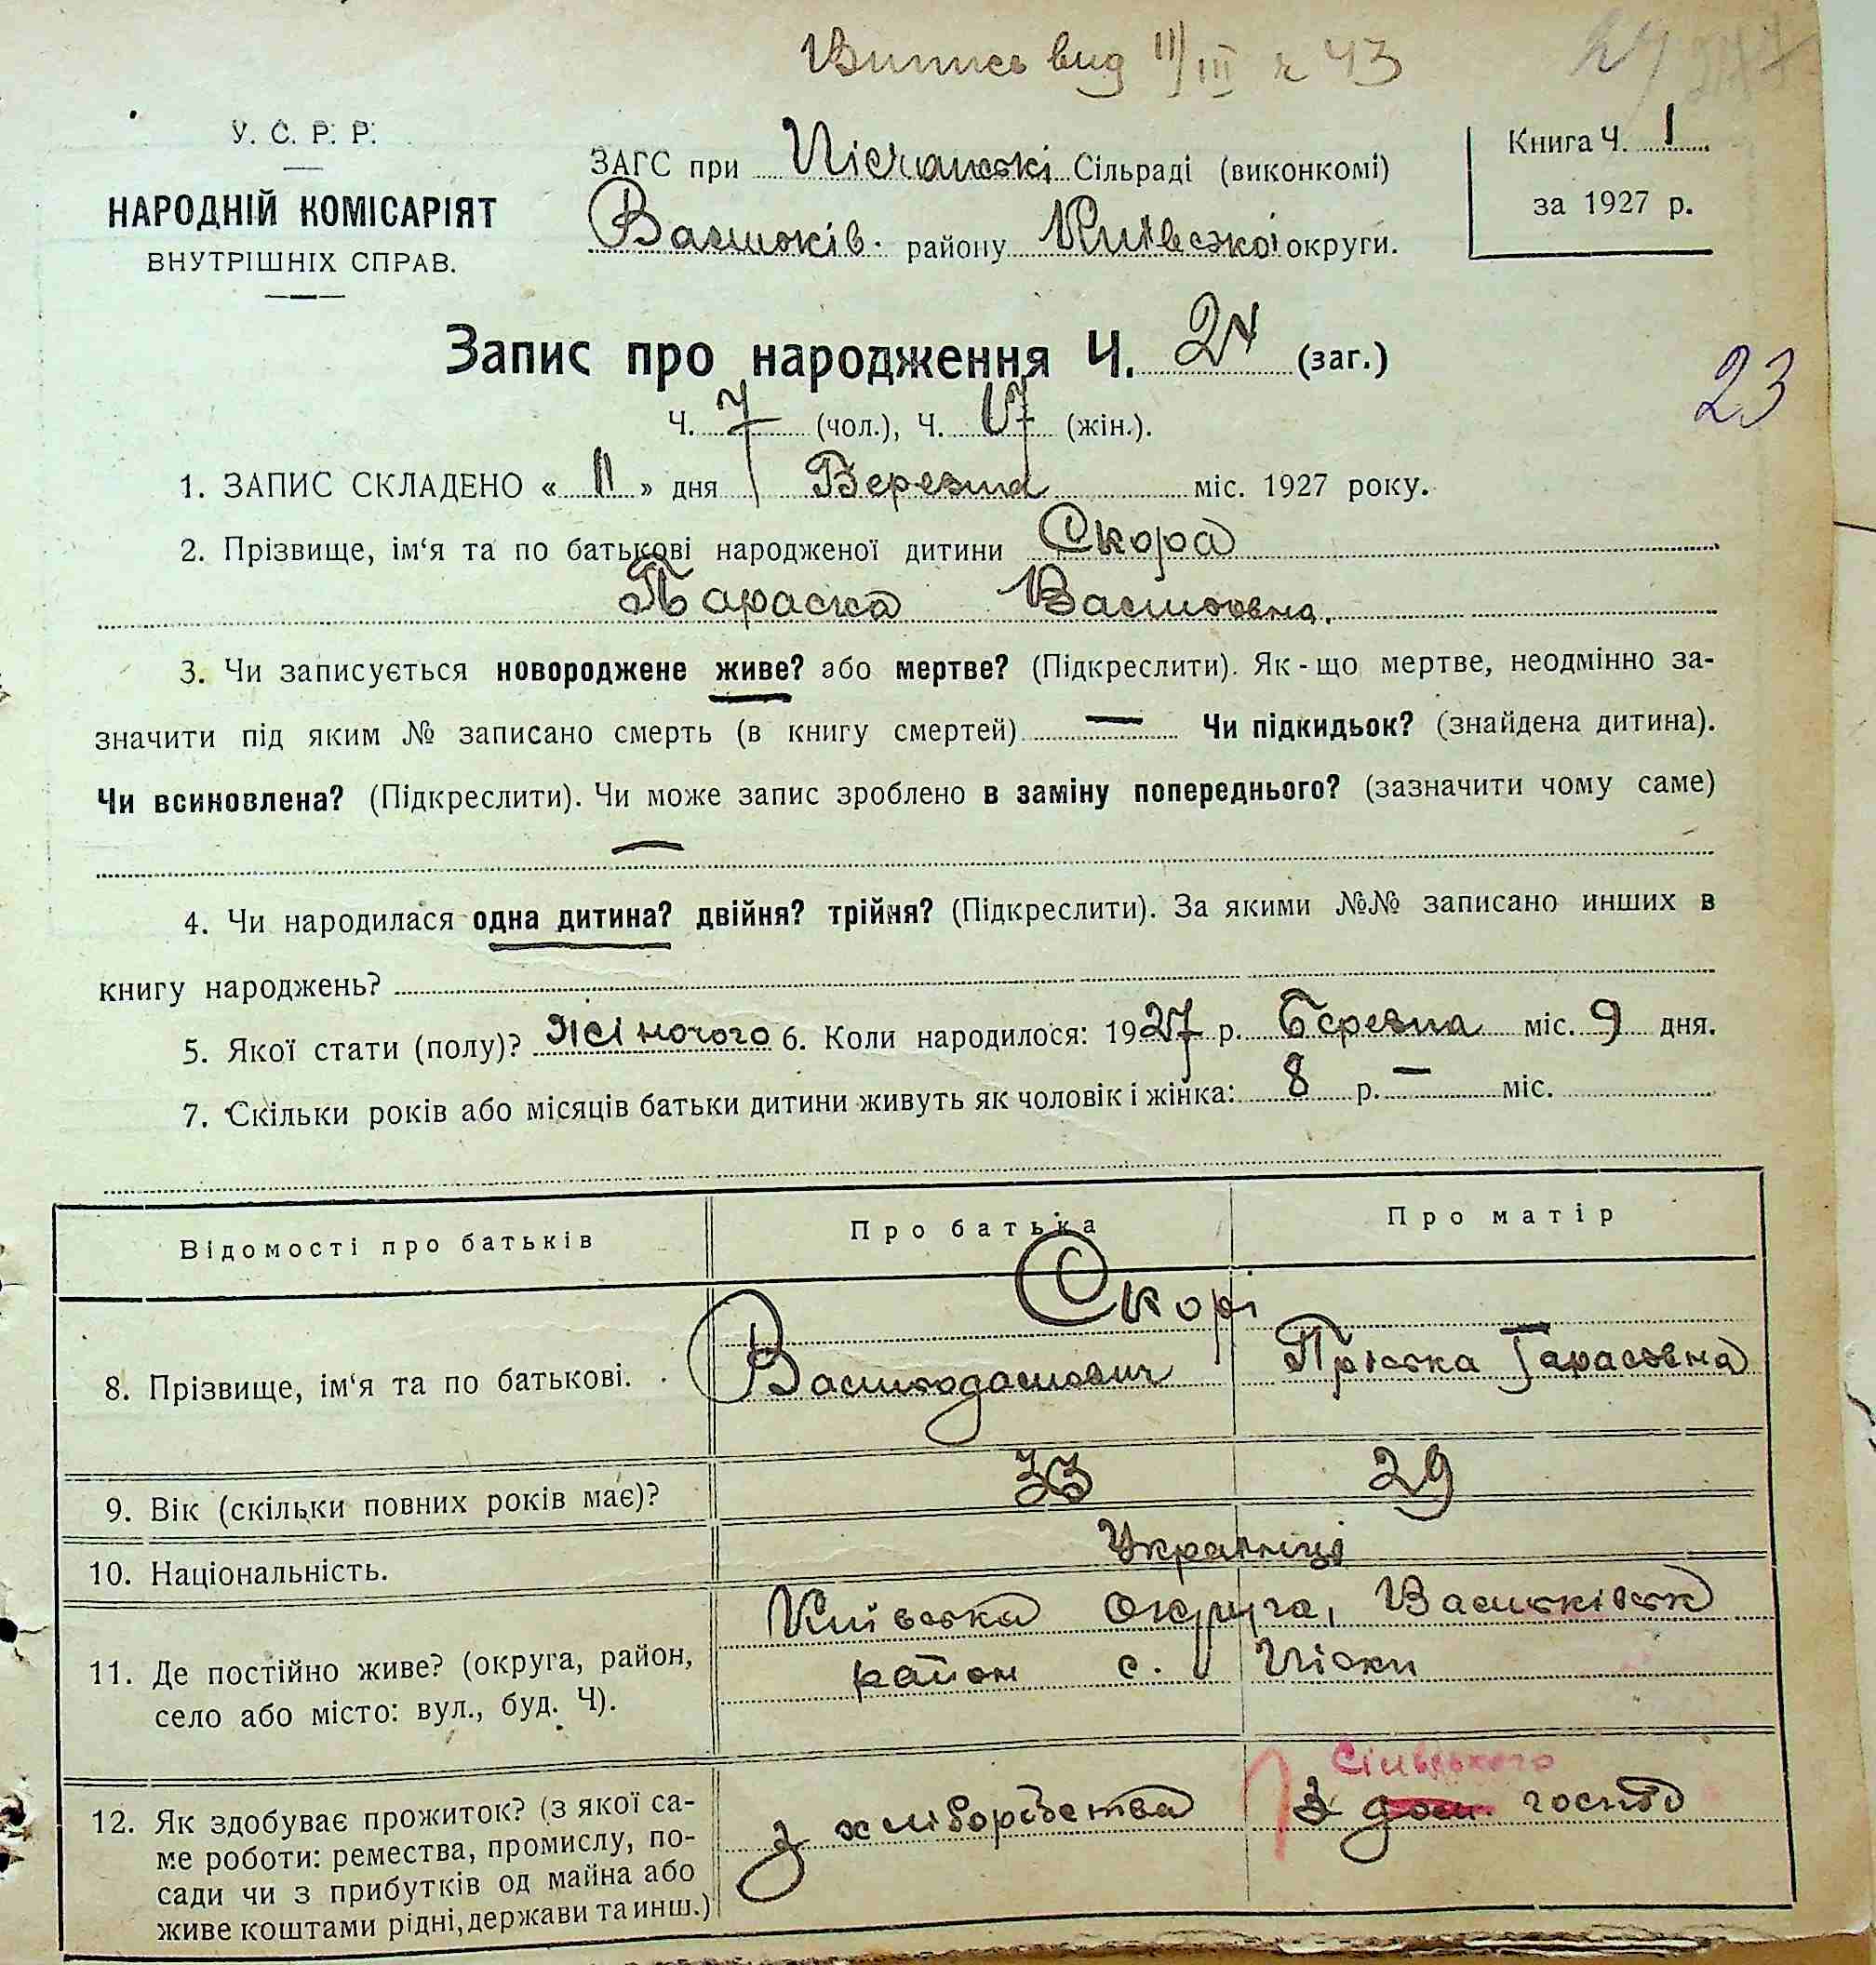 Випись вид 11/III н 43
У. С. Р. Р.
НАРОДНІЙ КОМІСАРІЯТ
ВНУТРІШНІХ СПРАВ.
ЗАГС при Пісчанські Сільраді (виконкомі)
Васильків. району Київської округи.
Книга Ч. 1
за 1927 р.
Запис про народження Ч. 24 (заг.)
23
Ч. 7 (чол.), Ч. 17 (жін.).
1. ЗАПИС СКЛАДЕНО « 11 » дня Березня міс. 1927 року.
2. Прізвище, ім‘я та по батькові народженої дитини Скора
Параска Васильовна.
3. Чи записується новороджене живе? або мертве? (Підкреслити). Як-що мертве, неодмінно за-
значити під яким № записано смерть (в книгу смертей) — Чи підкидьок? (знайдена дитина).
Чи всиновлена? (Підкреслити). Чи може запис зроблено в заміну попереднього? (зазначити чому саме)
—
4. Чи народилася одна дитина? двійня? трійня? (Підкреслити). За якими №№ записано инших в
книгу народжень?
5. Якої стати (полу)? Жіночого 6. Коли народилося: 1927 р. Березня міс. 9 дня.
7. Скільки років або місяців батьки дитини живуть як чоловік і жінка: 8 р. — міс.
Відомості про батьків Про батька Про матір
Скорі
8. Прізвище, ім‘я та по батькові. Василь Пріська Тарасовна
9. Вік (скільки повних років має)? 33 29
10. Національність. Українці
Київська округа, Васильківськ
11. Де постійно живе? (округа, район, район с. Піски
село або місто: вул., буд. Ч).
Сільського
12. Як здобуває прожиток? (з якої са- з хліборобства З дом. госпо
ме роботи: ремества, промислу, по-
сади чи з прибутків од майна або
живе коштами рідні, держави та инш.)